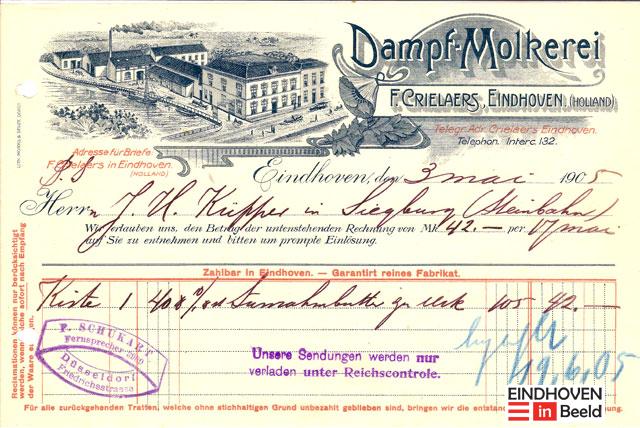 Dampf-Molkerei
F. CRIELAERS, EINDHOVEN, (HOLLAND)
Telegr. Adr. Crielaers Eindhoven.
Telephon. Interc. 132.
Adresse für Briefe
F. Crielaers in Eindhoven.
(HOLLAND)
Eindhoven, den 3 mai 1905
Herrn J. H. Küpper in Siegburg (Steinbahn)
Wir erlauben uns, den Betrag der untenstehenden Rechnung von Mk. 42.— per 17 mai
auf Sie zu entnehmen und bitten um prompte Einlösung.
Zahlbar in Eindhoven. — Garantirt reines Fabrikat.
Kiste 1 40 105 42.—
19.6.05
P. SCHUKART
Fernsprecher
Düsseldorf
Friedrichsstrasse
Unsere Sendungen werden nur
verladen unter Reichscontrole.
Reclamationen können nur berücksichtigt
werden, sofort nach Empfang
der Waare
Für alle zurückgehenden Tratten, welche ohne stichhaltigen Grund unbezahlt geblieben sind, bringen wir die
EINDHOVEN
in Beeld